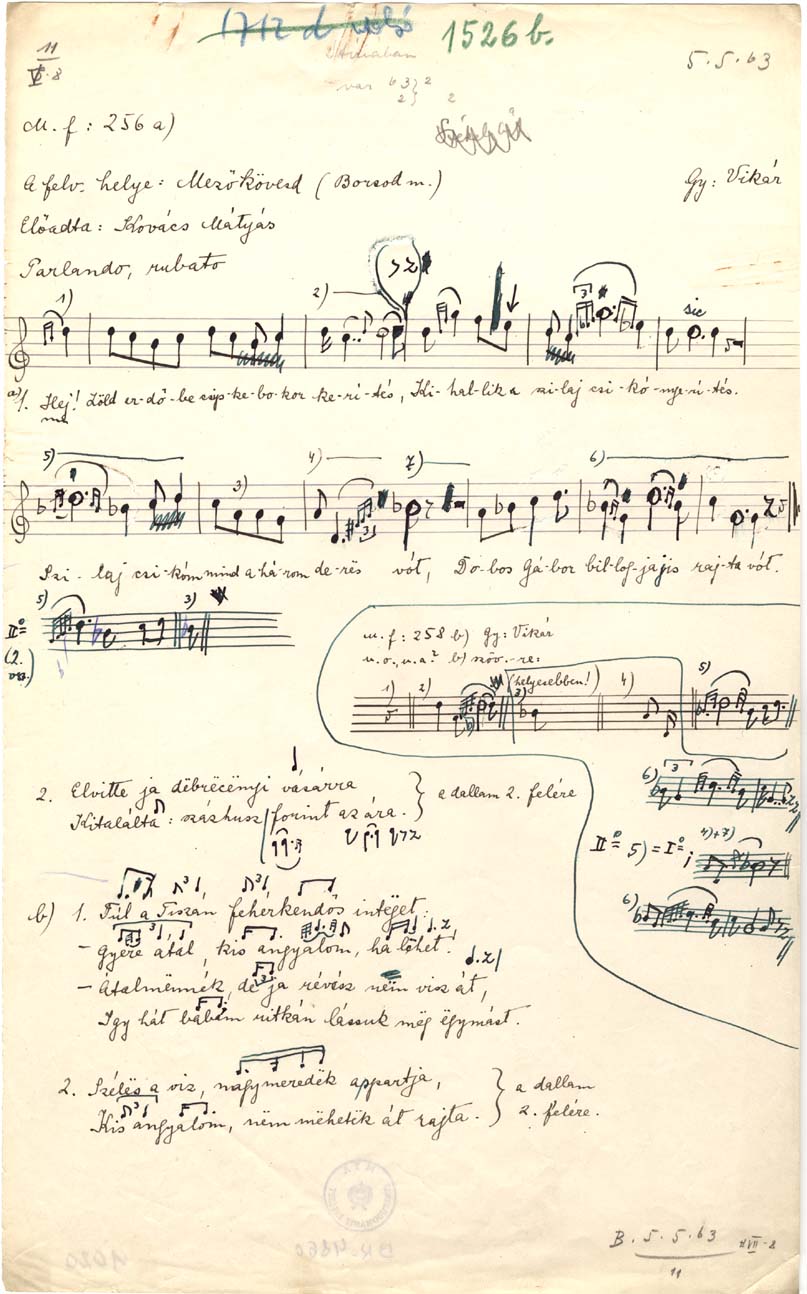 1526 b.
11
5.5.63
M. f: 256 a)
A felv. helye: Mezőkövesd (Borsod m.)
Gy: Vikár
Előadta: Kovács Mátyás
Parlando, rubato
1) 2) 3
sic
a) 1. Hej! Zöld er-dő-be csip-ke-bo-kor ke-rí-tés, Ki-hal-lik a szi-laj csi-kó-nye-rí-tés.
5) 3) 4) 7) 6)
3
Szi-laj csi-kóm mind a há-rom de-rës vót, Do-bos Gá-bor bil-log-ja jis raj-ta vót.
5) 3)
II°=
(2. vsz.)
m. f: 258 b) Gy: Vikár
u.o., u.a? b) szöv.-re:
(helyesebben!)
1) 2) 3) 4) 5)
2. Elvitte ja dëbrëcënyi vásárra
Kitalálta: százhusz forint az ára.
a dallam 2. felére
6) 3
II°= 5) = I°; 4)+7)
6)
b) 1. Túl a Tiszán fehérkendős intëget:
- Gyere átal, kis angyalom, ha lëhet!
- Átalmënnék, de ja révész nëm visz át,
Igy hát babám ritkán lássuk mëg ëgymást.
2. Szélës a viz, nagymeredëk a partja,
Kis angyalom, nëm mëhetëk át rajta.
a dallam
2. felére.
B. 5.5.63
11